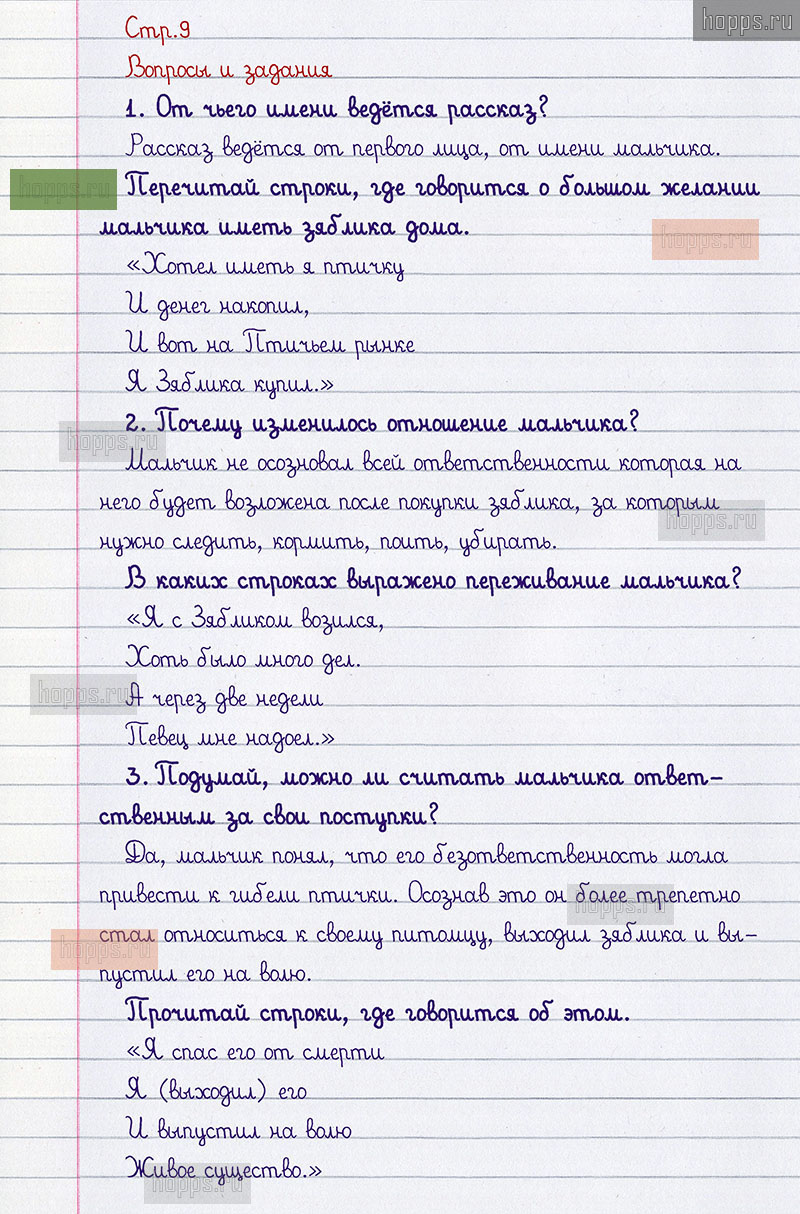 hopps.ru
Стр.9
Вопросы и задания
1. От чьего имени ведётся рассказ?
Рассказ ведётся от первого лица, от имени мальчика.
hopps.ru
Перечитай строки, где говорится о большом желании
мальчика иметь зяблика дома.
hopps.ru
«Хотел иметь я птичку
И денег накопил,
И вот на Птичьем рынке
Я Зяблика купил.»
2. Почему изменилось отношение мальчика?
hopps.ru
Мальчик не осозновал всей ответственности которая на
него будет возложена после покупки зяблика, за которым
hopps.ru
нужно следить, кормить, поить, убирать.
В каких строках выражено переживание мальчика?
«Я с Зябликом возился,
Хоть было много дел.
hopps.ru
А через две недели
Певец мне надоел.»
3. Подумай, можно ли считать мальчика ответ-
ственным за свои поступки?
Да, мальчик понял, что его безответственность могла
привести к гибели птички. Осознав это он более трепетно
hopps.ru
стал относиться к своему питомцу, выходил зяблика и вы-
hopps.ru
пустил его на волю.
Прочитай строки, где говорится об этом.
«Я спас его от смерти
Я (выходил) его
И выпустил на волю
Живое существо.»
hopps.ru